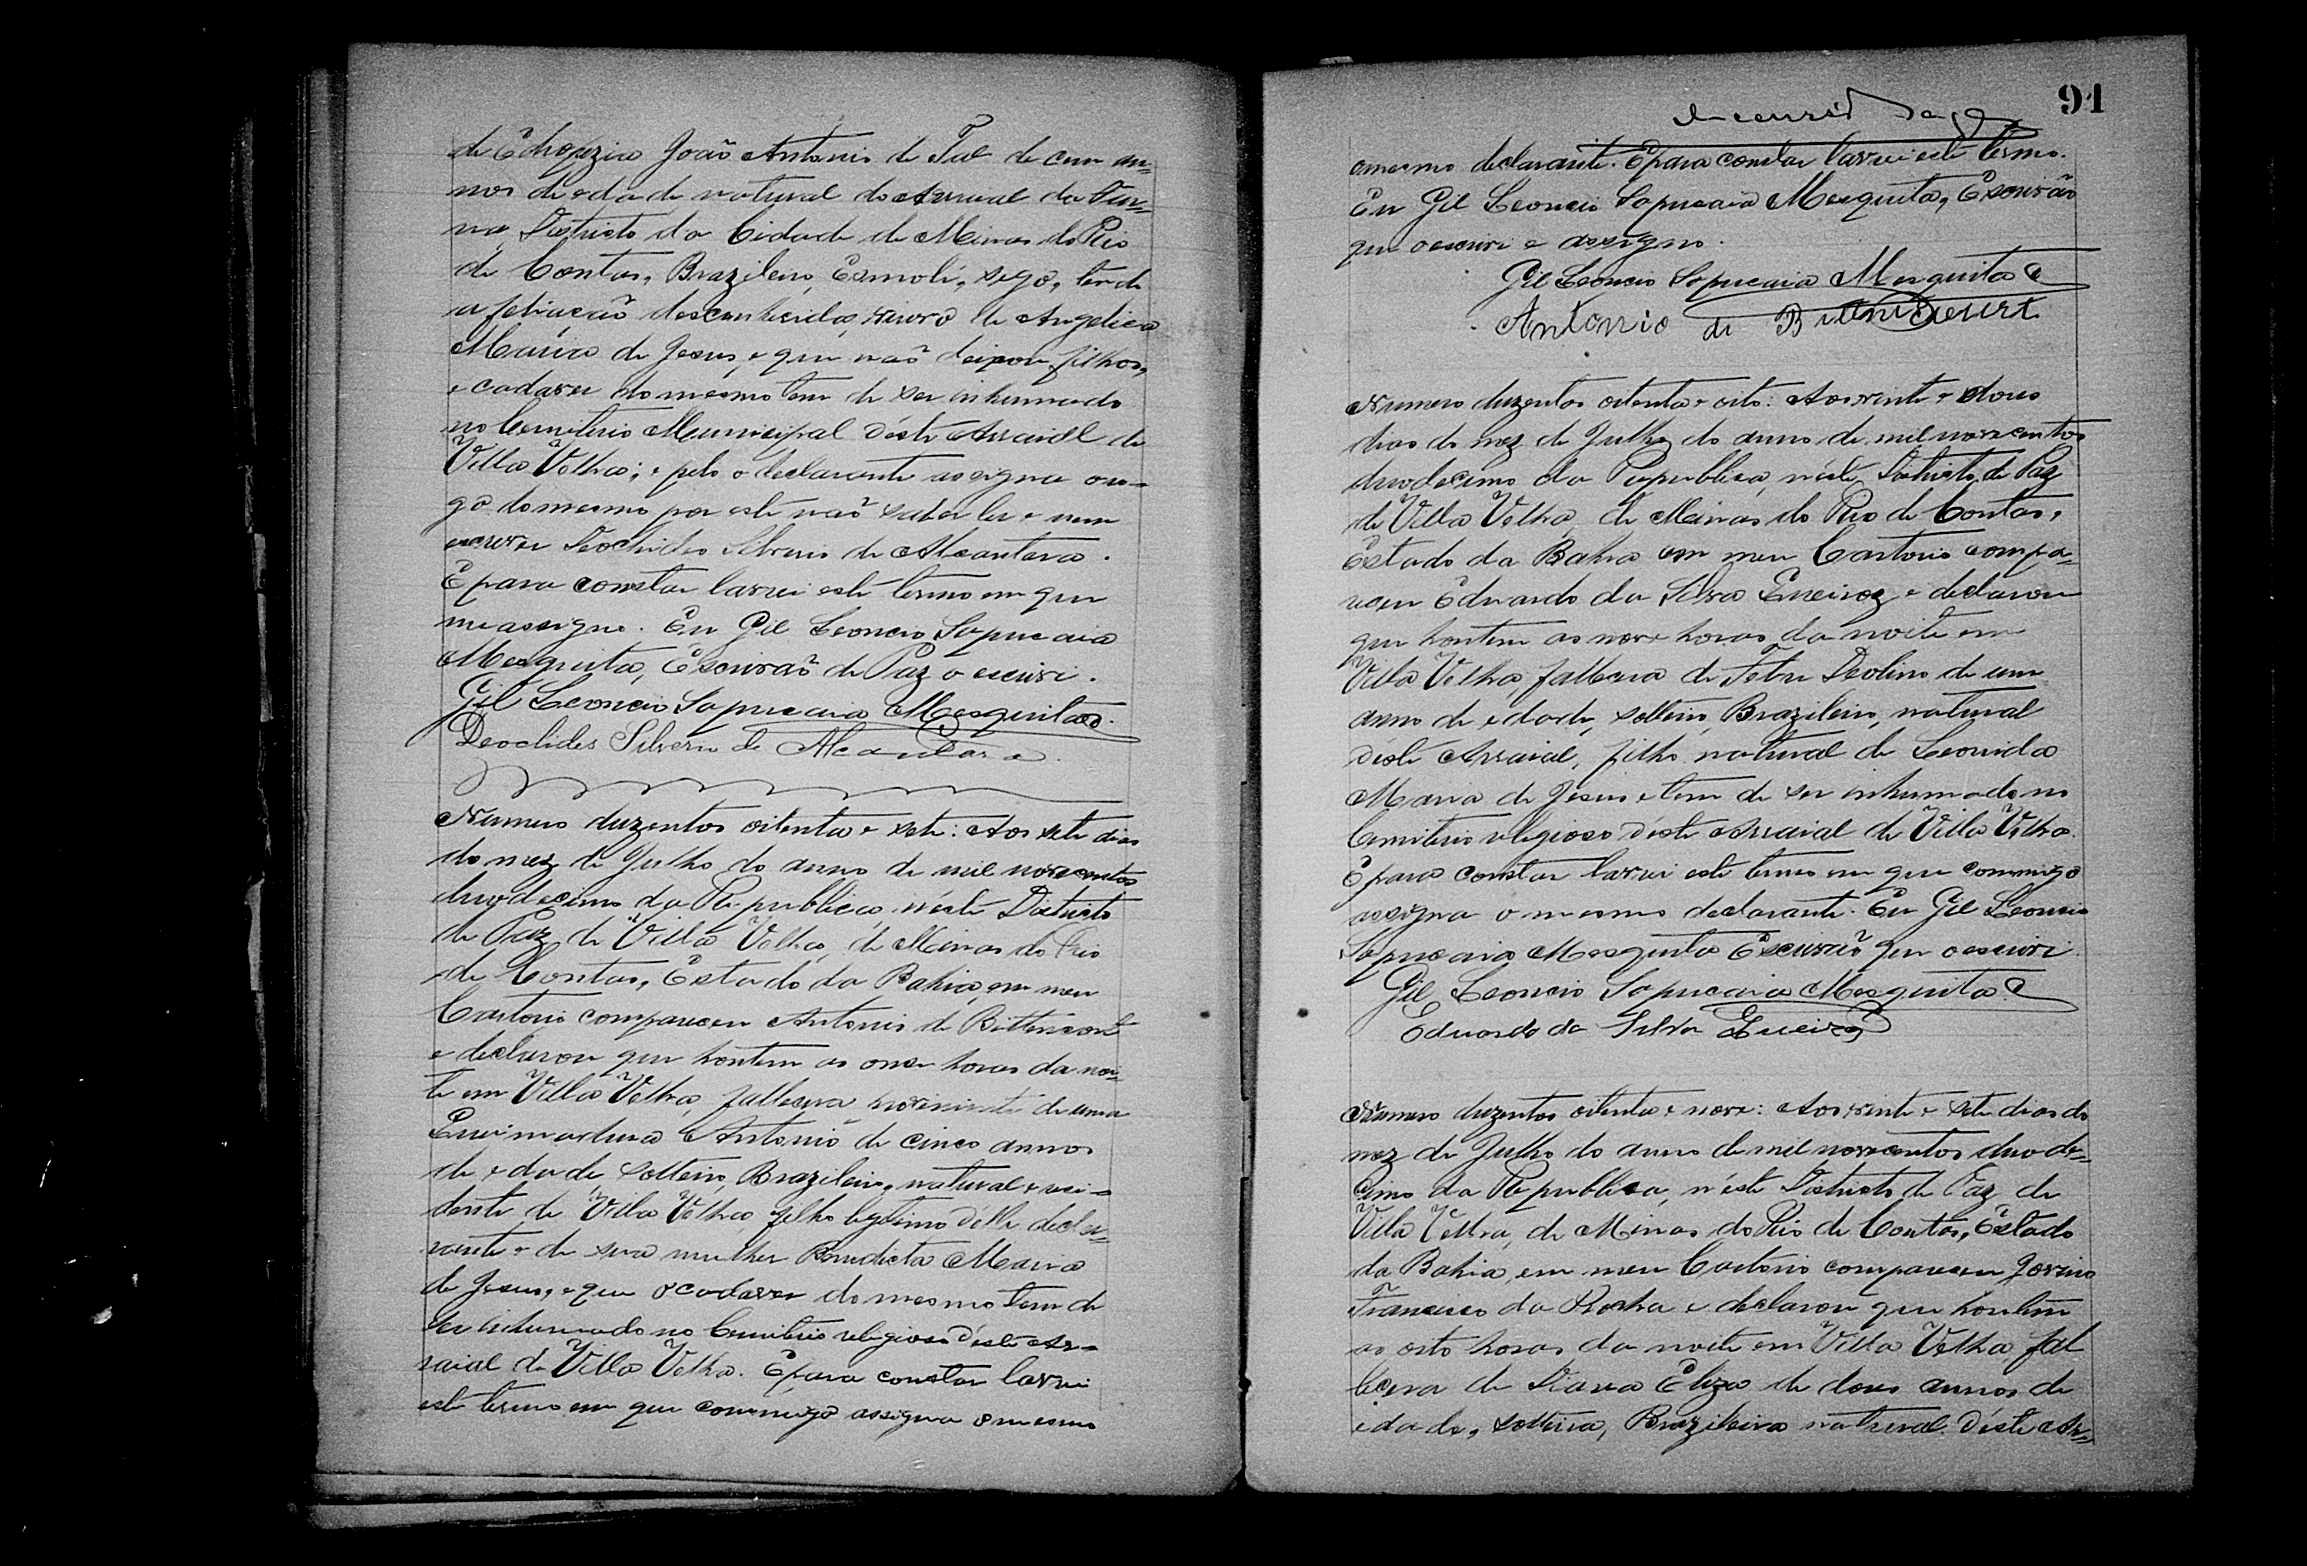 de Edropezia João Antonio de Tal de cem an=
nos de edade natural do Arraial da Fur=
na, Districto da Cidade de Minas do Rio
de Contas, Brazileiro, Esmolé, sego, tendo
a febiação desconhecida, viuvo de Angelica
Maria de Jesus, e que não deixou filhos,
e cadaver do mesmo tem de ser inhumado
no Cemiterio Municipal déste Arraial de
Villa Velha; e pelo o declarante assigna o ro-
go do mesmo por este não saber ler e nem
escrever Deoclides Silverio de Alcantara.
E para constar lavrei esté termo em que
me assigno. Eu Gil Leoncio Sapucaia
Mesquita, Escrivão de Paz o escrivi.
Gil Leoncio Sapucaia Mesquita
Deoclides Silverio de Alcantara
Numero duzentos oitenta e sete: Aos sete dias
do mez de Julho do anno de mil novecentos
duodecimo da Republica, nésté Districto
de Paz de Villa Velha, de Minas do Rio
de Contas, Estado da Bahia, em meu
Cartorio compareceu Antonio de Bittencort
e declarou que hontem as onze horas da noi=
te em Villa Velha, fallecera de uma
Queimadura Antonio de cinco annos
de edade solteiro, Brazileiro, natural e resi-
dente de Villa Velha, filho legitimo délle decla=
rante e de sua mulher Benedicta Maria
de Jesus, e que o cadaver do mesmo tem de
ser inhumado no Cemiterio religioso déste Ar-
raial de Villa Velha. E para constar lavrei
este termo em que commigo assigna o mesmo
91
o mesmo declarante. E para constar lavrei este termo.
Eu Gil Leoncio Sapucaia Mesquita, Escrivão
que o escrivi e assigno.
Gil Leoncio Sapucaia Mesquita
Antonio di
Numero duzentos oitenta e oito: Aos vinte e dous
dias do mez de Julho do anno de mil novecentos
duodecimo da Republica, nésté Districto de Paz
de Villa Velha, de Minas do Rio de Contas,
Estado da Bahia em meu Cartorio compa=
receu Eduardo da Silva Queiroz e declarou
que hontem as nove horas da noite em
Villa Velha, fallecera de Febre Deolino de um
anno de edade, solteiro, Brazileiro, natural
déste Arraial, filho natural de Leonida
Maria de Jesus e tem de ser inhumado no
Cemiterio religioso déste Arraial de Villa Velha.
E para constar lavrei este termo em que commigo
assigna o mesmo declarante. Eu Gil Leoncio
Sapucaia Mesquita Escrivão que o escrivi.
Gil Leoncio Sapucaia Mesquita
Eduardo da Silva Queiroz
Numero duzentos oitenta e nove: Aos vinte e sete dias do
mez de Julho do anno de mil novecentos duode=
cimo da Republica, n'éste Districto de Paz de
Villa Velha, de Minas do Rio de Contas, Estado
da Bahia, em meu Cartorio compareceu Jovino
Francisco da Rocha e declarou que hontem
as oito horas da noite em Villa Velha fal
lecera de Eliza de dous annos de
edade, solteira, Brazileira natural déste Ar=